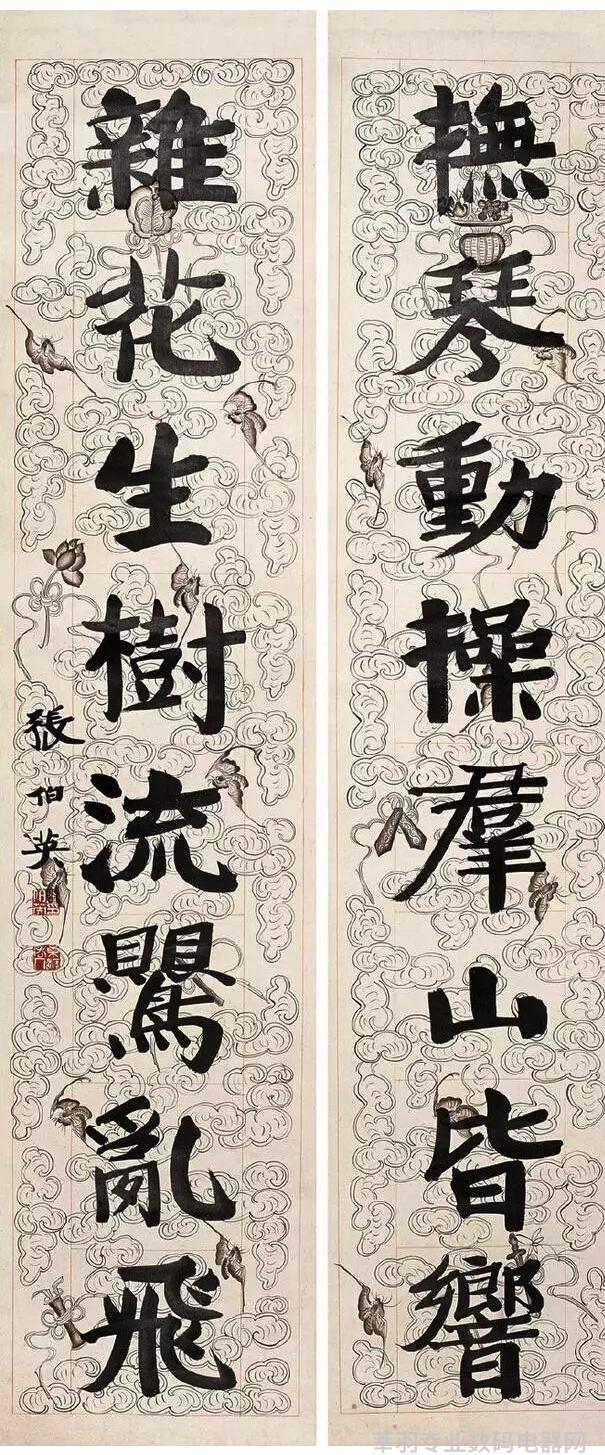 撫琴動操羣山皆響
雜花生樹流鶯亂飛
張伯英
革羽专业数码电器网